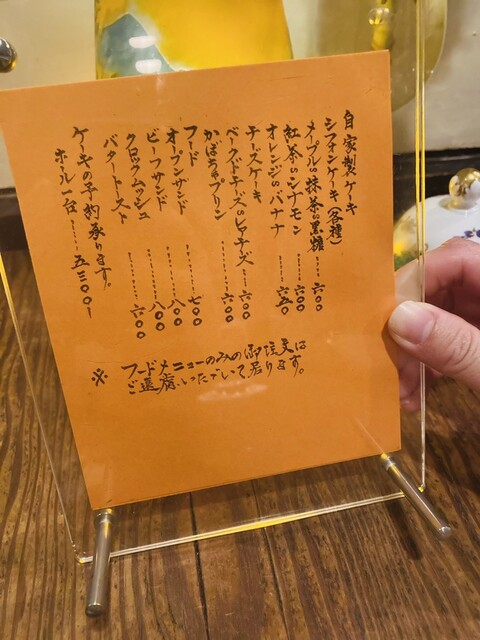 自家製ケーキ
シフォンケーキ(各種)
メープル・抹茶・黒糖……六〇〇
紅茶・シナモン……六〇〇
オレンジ・バナナ……六五〇
チーズケーキ
ベークドチーズ・レアチーズ……六〇〇
かぼちゃプリン……六〇〇
フード
オープンサンド……七〇〇
ビーフサンド……八〇〇
クロックムッシュ……八〇〇
バタートースト……六〇〇
ケーキの予約承ります。
ホール一台……五三〇〇ー
※ フードメニューのみの御注文は
ご遠慮いただいて居ります。